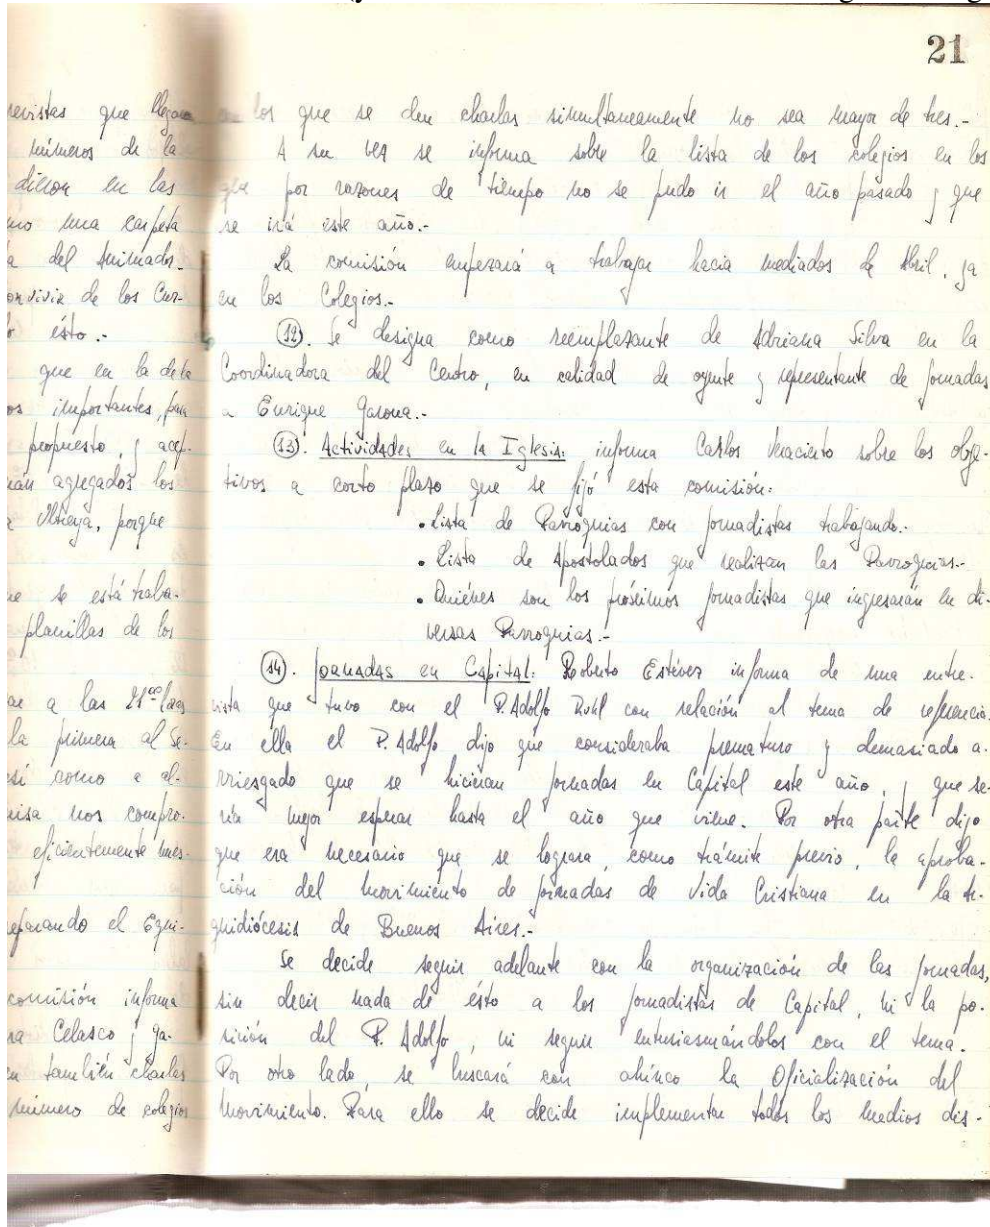 21
revistas que llegan
números de la
dieron en las
mo una carpeta
a del Animador.
onvivir de los Cur-
o ésto.-
que en la
os importantes, para
propuesto, y acep-
rán agregados los
Ultreya, porque
ue se está traba-
planillas de los
a las 21°° horas
la primera al Se-
sí como a al-
uisa nos compro-
eficientemente nues-
eparando el Equi-
comisión informa
ra Celasco y ga-
n también charlas
número de colegios
en los que se den charlas simultaneamente no sea mayor de tres.-
A su vez se informa sobre la lista de los colegios en los
que por razones de tiempo no se pudo ir el año pasado y que
se irá este año.-
La comisión empezará a trabajar hacia mediados de Abril, ya
en los Colegios.-
12). Se designa como reemplazante de Adriana Silva en la
Coordinadora del Centro, en calidad de oyente y representante de jornadas
a Enrique Garona.-
13). Actividades en la Iglesia: informa Carlos Veraciento sobre los obje-
tivos a corto plazo que se fijó esta comisión:
• Lista de Parroquias con jornadistas trabajando.-
• Lista de Apostolados que realizan las Parroquias.-
• Quiénes son los próximos jornadistas que ingresarán en di-
versas Parroquias.-
14). Jornadas en Capital: Roberto Estévez informa de una entre-
vista que tuvo con el P. Adolfo Ruhl con relación al tema de referencia.
En ella el P. Adolfo dijo que consideraba prematuro y demasiado a-
rriesgado que se hicieran jornadas en Capital este año, y que se-
ría mejor esperar hasta el año que viene. Por otra parte dijo
que era necesario que se lograra, como trámite previo, la aproba-
ción del movimiento de jornadas de Vida Cristiana en la Ar-
quidiócesis de Buenos Aires.-
Se decide seguir adelante con la organización de las jornadas,
sin decir nada de ésto a los jornadistas de Capital, ni la po-
sición del P. Adolfo, ni seguir entusiasmándolos con el tema.
Por otro lado, se buscará con ahínco la Oficialización del
Movimiento. Para ello se decide implementar todos los medios dis-